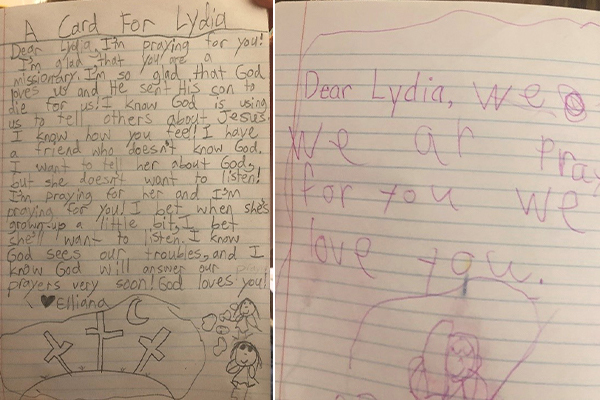 A Card For Lydia
Dear Lydia, I'm praying for you!
I'm glad that you are a
missionary. I'm so glad that God
loves us and He sent His son to
die for us! I know God is using
us to tell others about Jesus.
I know how you feel! I have
a friend who doesn't know God.
I want to tell her about God,
but she doesn't want to listen!
I'm praying for her and I'm
praying for you! I bet when she's
grown-up a little bit, I bet
she'll want to listen. I know
God sees our troubles, and I
know God will answer our
prayers very soon! God loves you!
Elliana
Dear Lydia, we
we ar pray
for you we
love you.